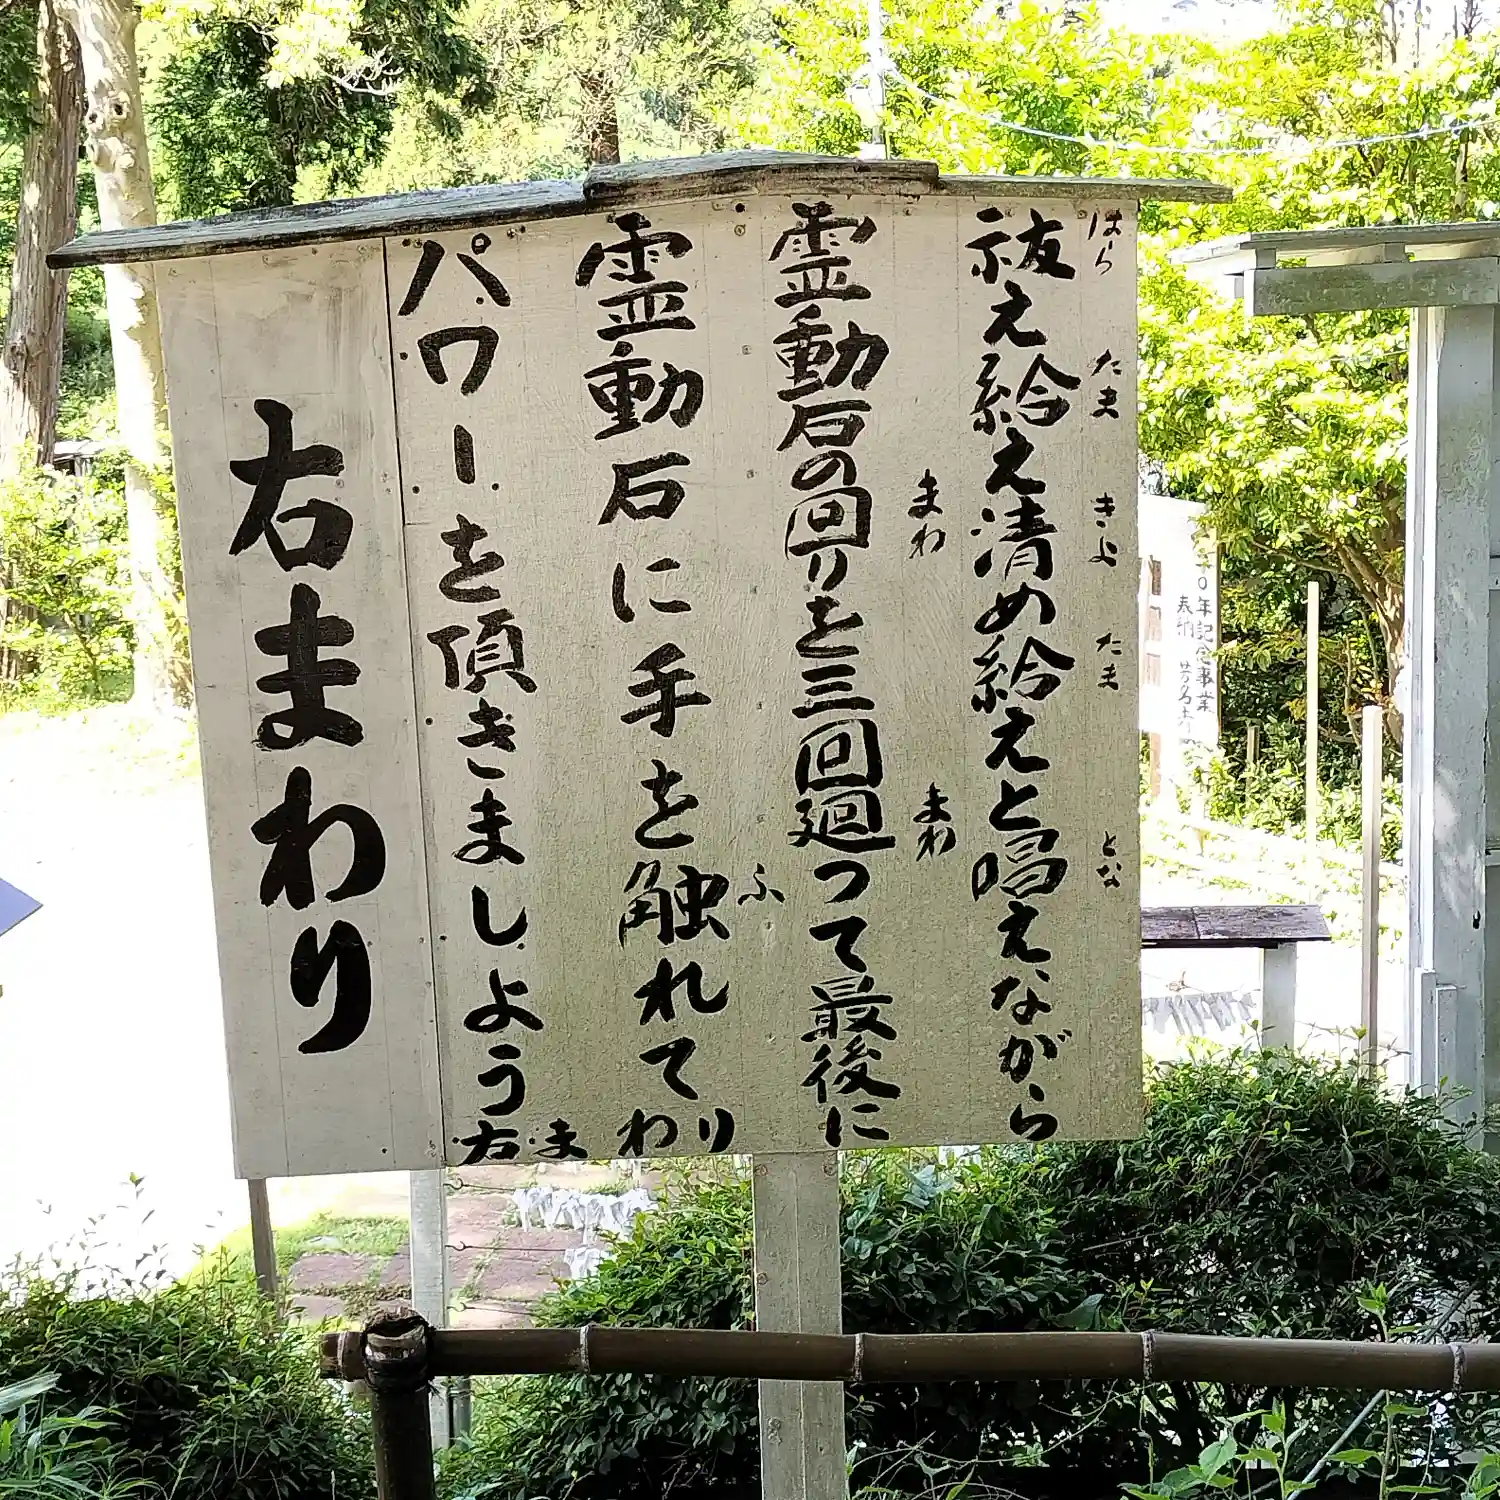 はら たま きよ たま とな
祓え給え清め給えと唱えながら
まわ まわ
霊動石の回りを三回廻って最後に
ふ
霊動石に手を触れて
パワーを頂きましょう
右まわり
右まわり
年記念事業
奉納 芳名